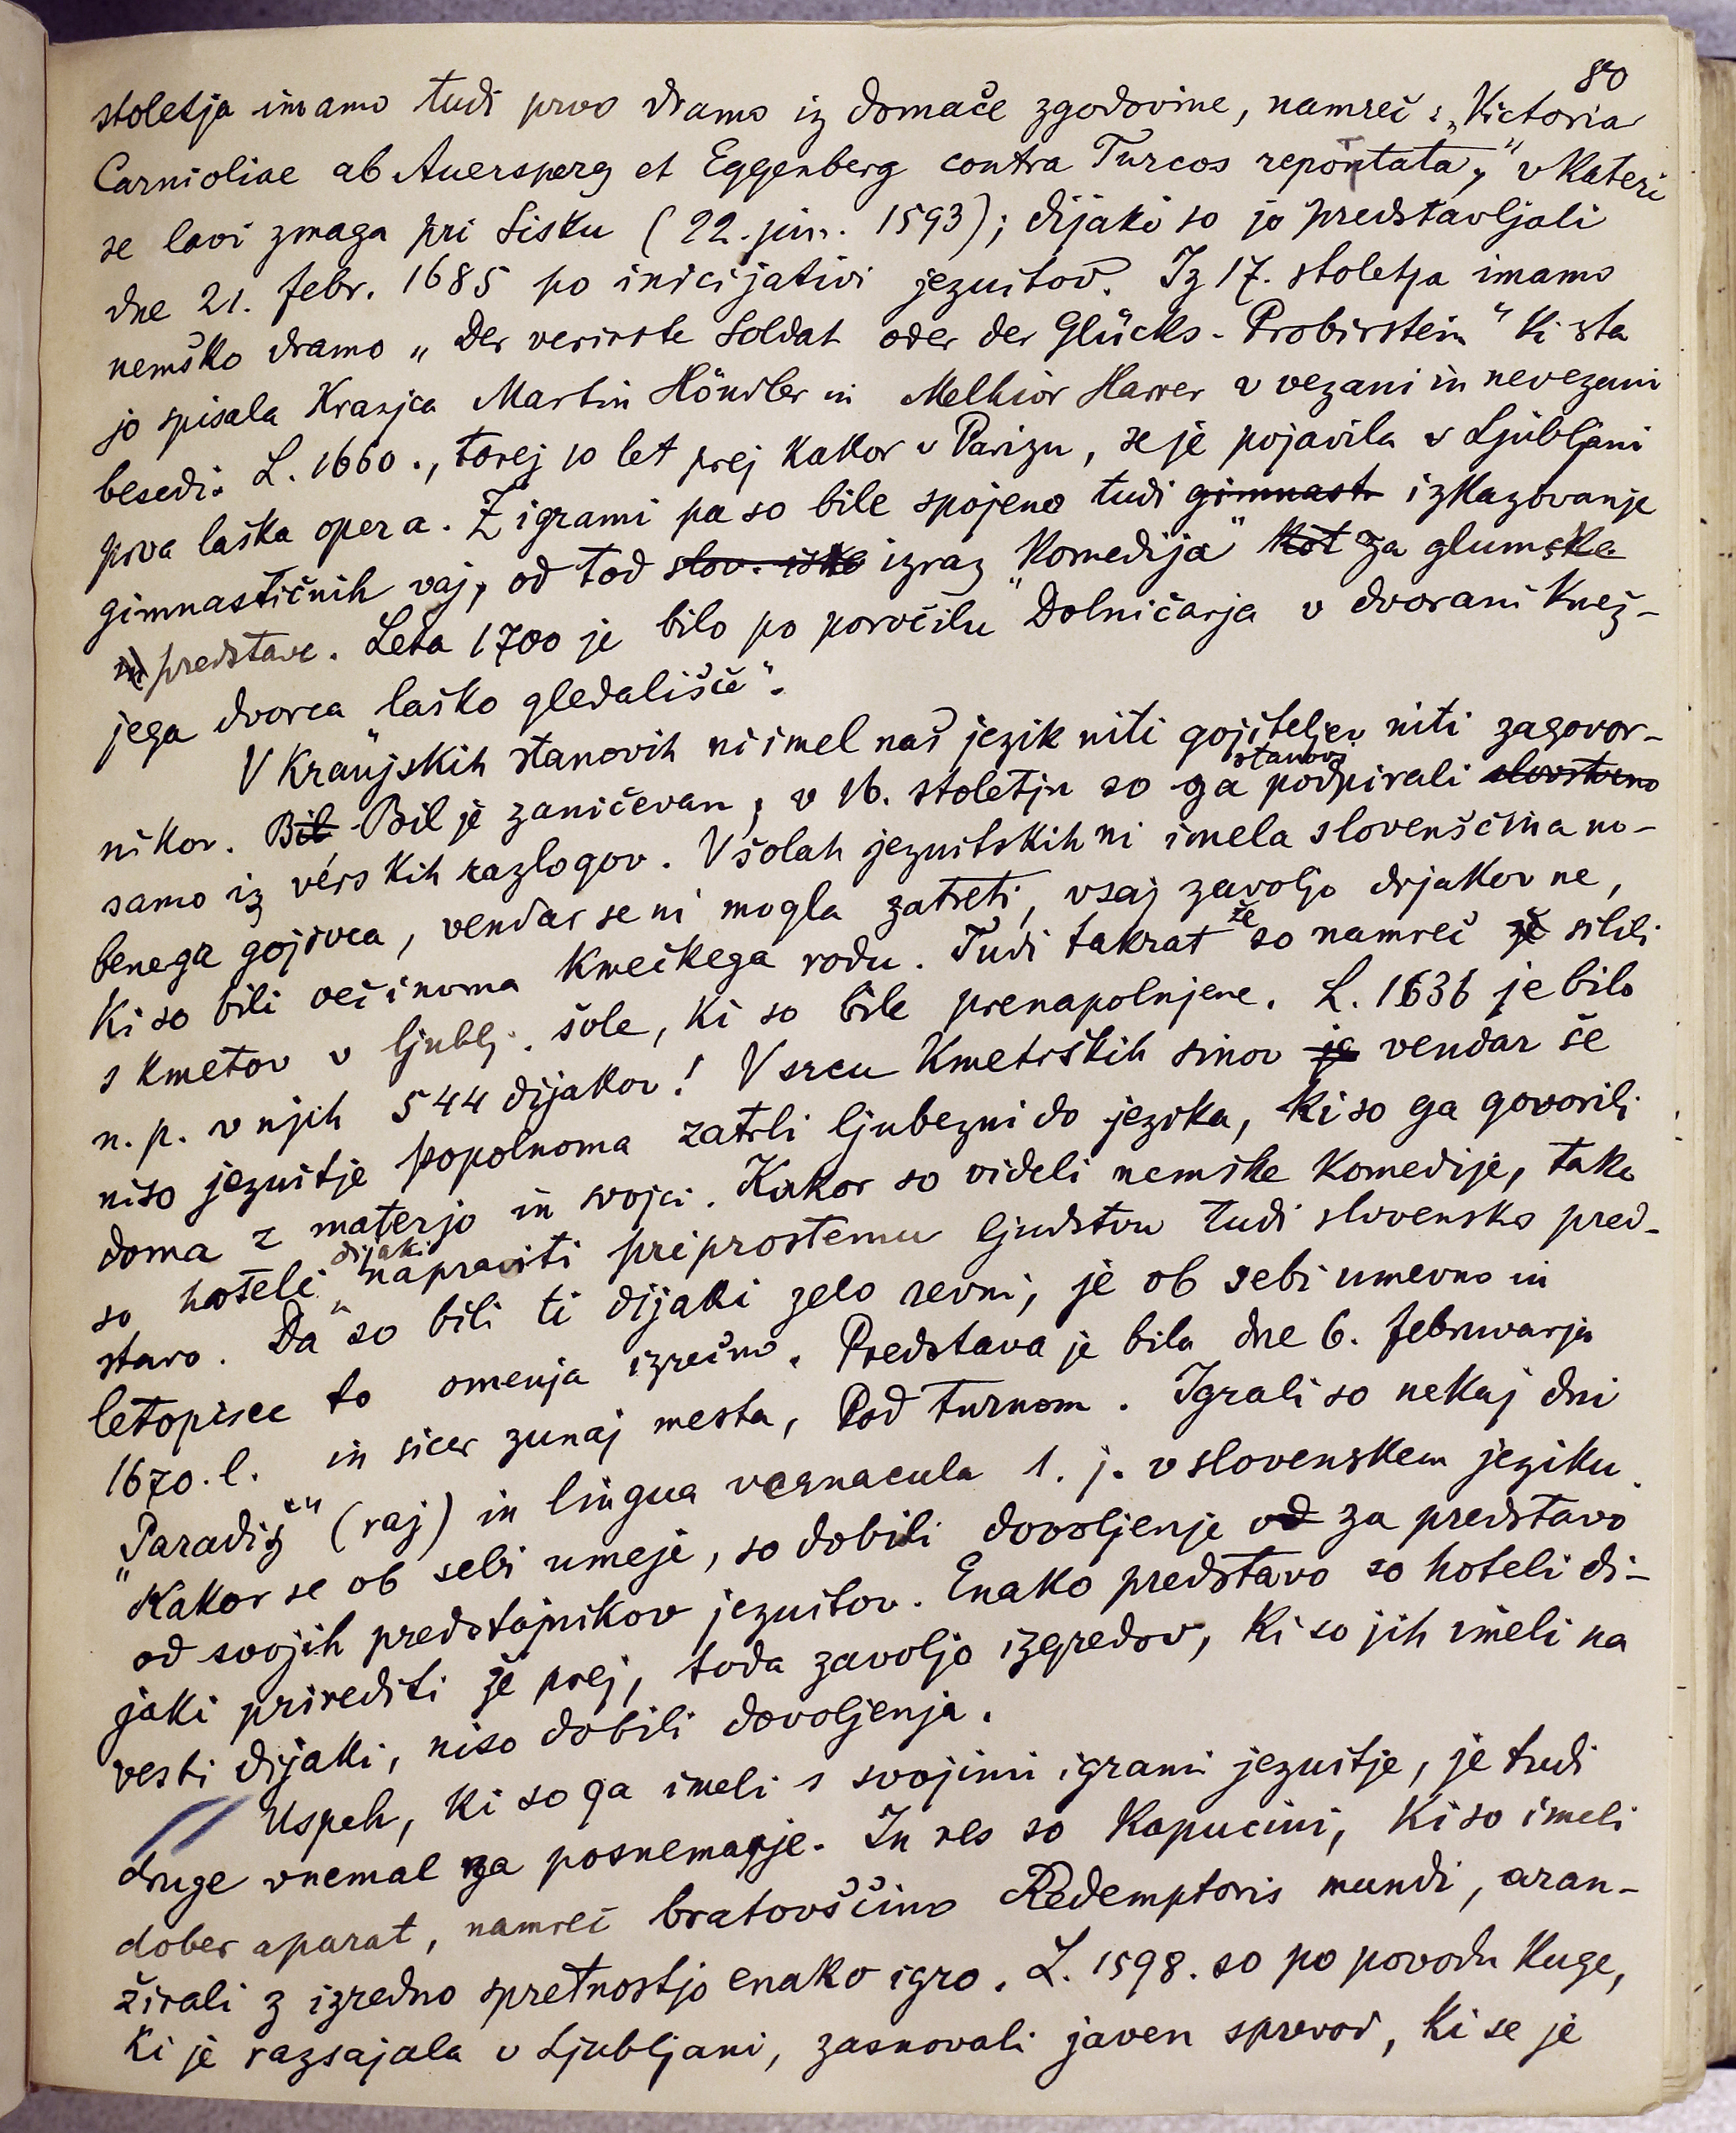 80
stoletja imamo tudi prvo dramo iz domače zgodovine, namreč: „Victoria
Carnioliae ab Auersperg et Eggenberg contra Turcos reportata,“ v kateri
se lavi zmaga pri Sisku (22. jun. 1593); dijaki so jo predstavljali
dne 21. febr. 1685 po inicijativi jezuitov. Iz 17. stoletja imamo
nemško dramo „Der verirrte Soldat oder der Glücks-Probirstein“ ki sta
jo spisala Kranjca Martin Höndler in Melhior Harrer v vezani in nevezani
besedi. L. 1660., torej 10 let prej kakor v Parizu, se je pojavila v Ljubljani
prva laška opera. Z igrami pa so bile spojene tudi gimnast izkazovanje
gimnastičnih vaj, od tod slov. izraz „komedija“ kot za glumske
predstave. Leta 1700 je bilo po poročilu Dolničarja v dvorani knez-
jega dvorca laško gledališče“.
V kranjskih stanovih ni imel naš jezik niti gojiteljev niti zagovor-
nikov. Bil Bil je zaničevan, v 16. stoletju so ga stanovi podpirali slovstveno
samo iz vérskih razlogov. V šolah jezuitskih ni imela slovenščina no-
benega gojivca, vendar se ni mogla zatreti, vsaj zavoljo dijakov ne,
ki so bili večinoma kmečkega rodu. Tudi takrat že so namreč že silili
s kmetov v ljublj. šole, ki so bile prenapolnjene. L. 1636 je bilo
n. p. v njih 544 dijakov! V srcu kmetiških sinov je vendar še
niso jezuitje popolnoma zatrli ljubezni do jezika, ki so ga govorili
doma z materjo in svojci. Kakor so videli nemške komedije, tako
so hoteli dijaki napraviti priprostemu ljudstvu tudi slovensko pred-
stavo. Da so bili ti dijaki zelo revni, je ob sebi umevno in
letopisec to omenja izrečno. Predstava je bila dne 6. februvarja
1670. l. in sicer zunaj mesta, Pod turnom. Igrali so nekaj dni
„Paradiž“ (raj) in lingua vernacula t. j. v slovenskem jeziku.
Kakor se ob sebi umeje, so dobili dovoljenje od za predstavo
od svojih predstojnikov jezuitov. Enako predstavo so hoteli di-
jaki prirediti že prej, toda zavoljo izgredov, ki so jih imeli na
vesti dijaki, niso dobili dovoljenja.
Uspeh, ki so ga imeli s svojimi igrami jezuitje, je tudi
druge vnemal za posnemanje. In res so kapucini, ki so imeli
dober aparat, namreč bratovščino Redemptoris mundi, aran-
žirali z izredno spretnostjo enako igro. L. 1598. so po povodu kuge,
ki je razsajala v Ljubljani, zasnovali javen sprevod, ki se je